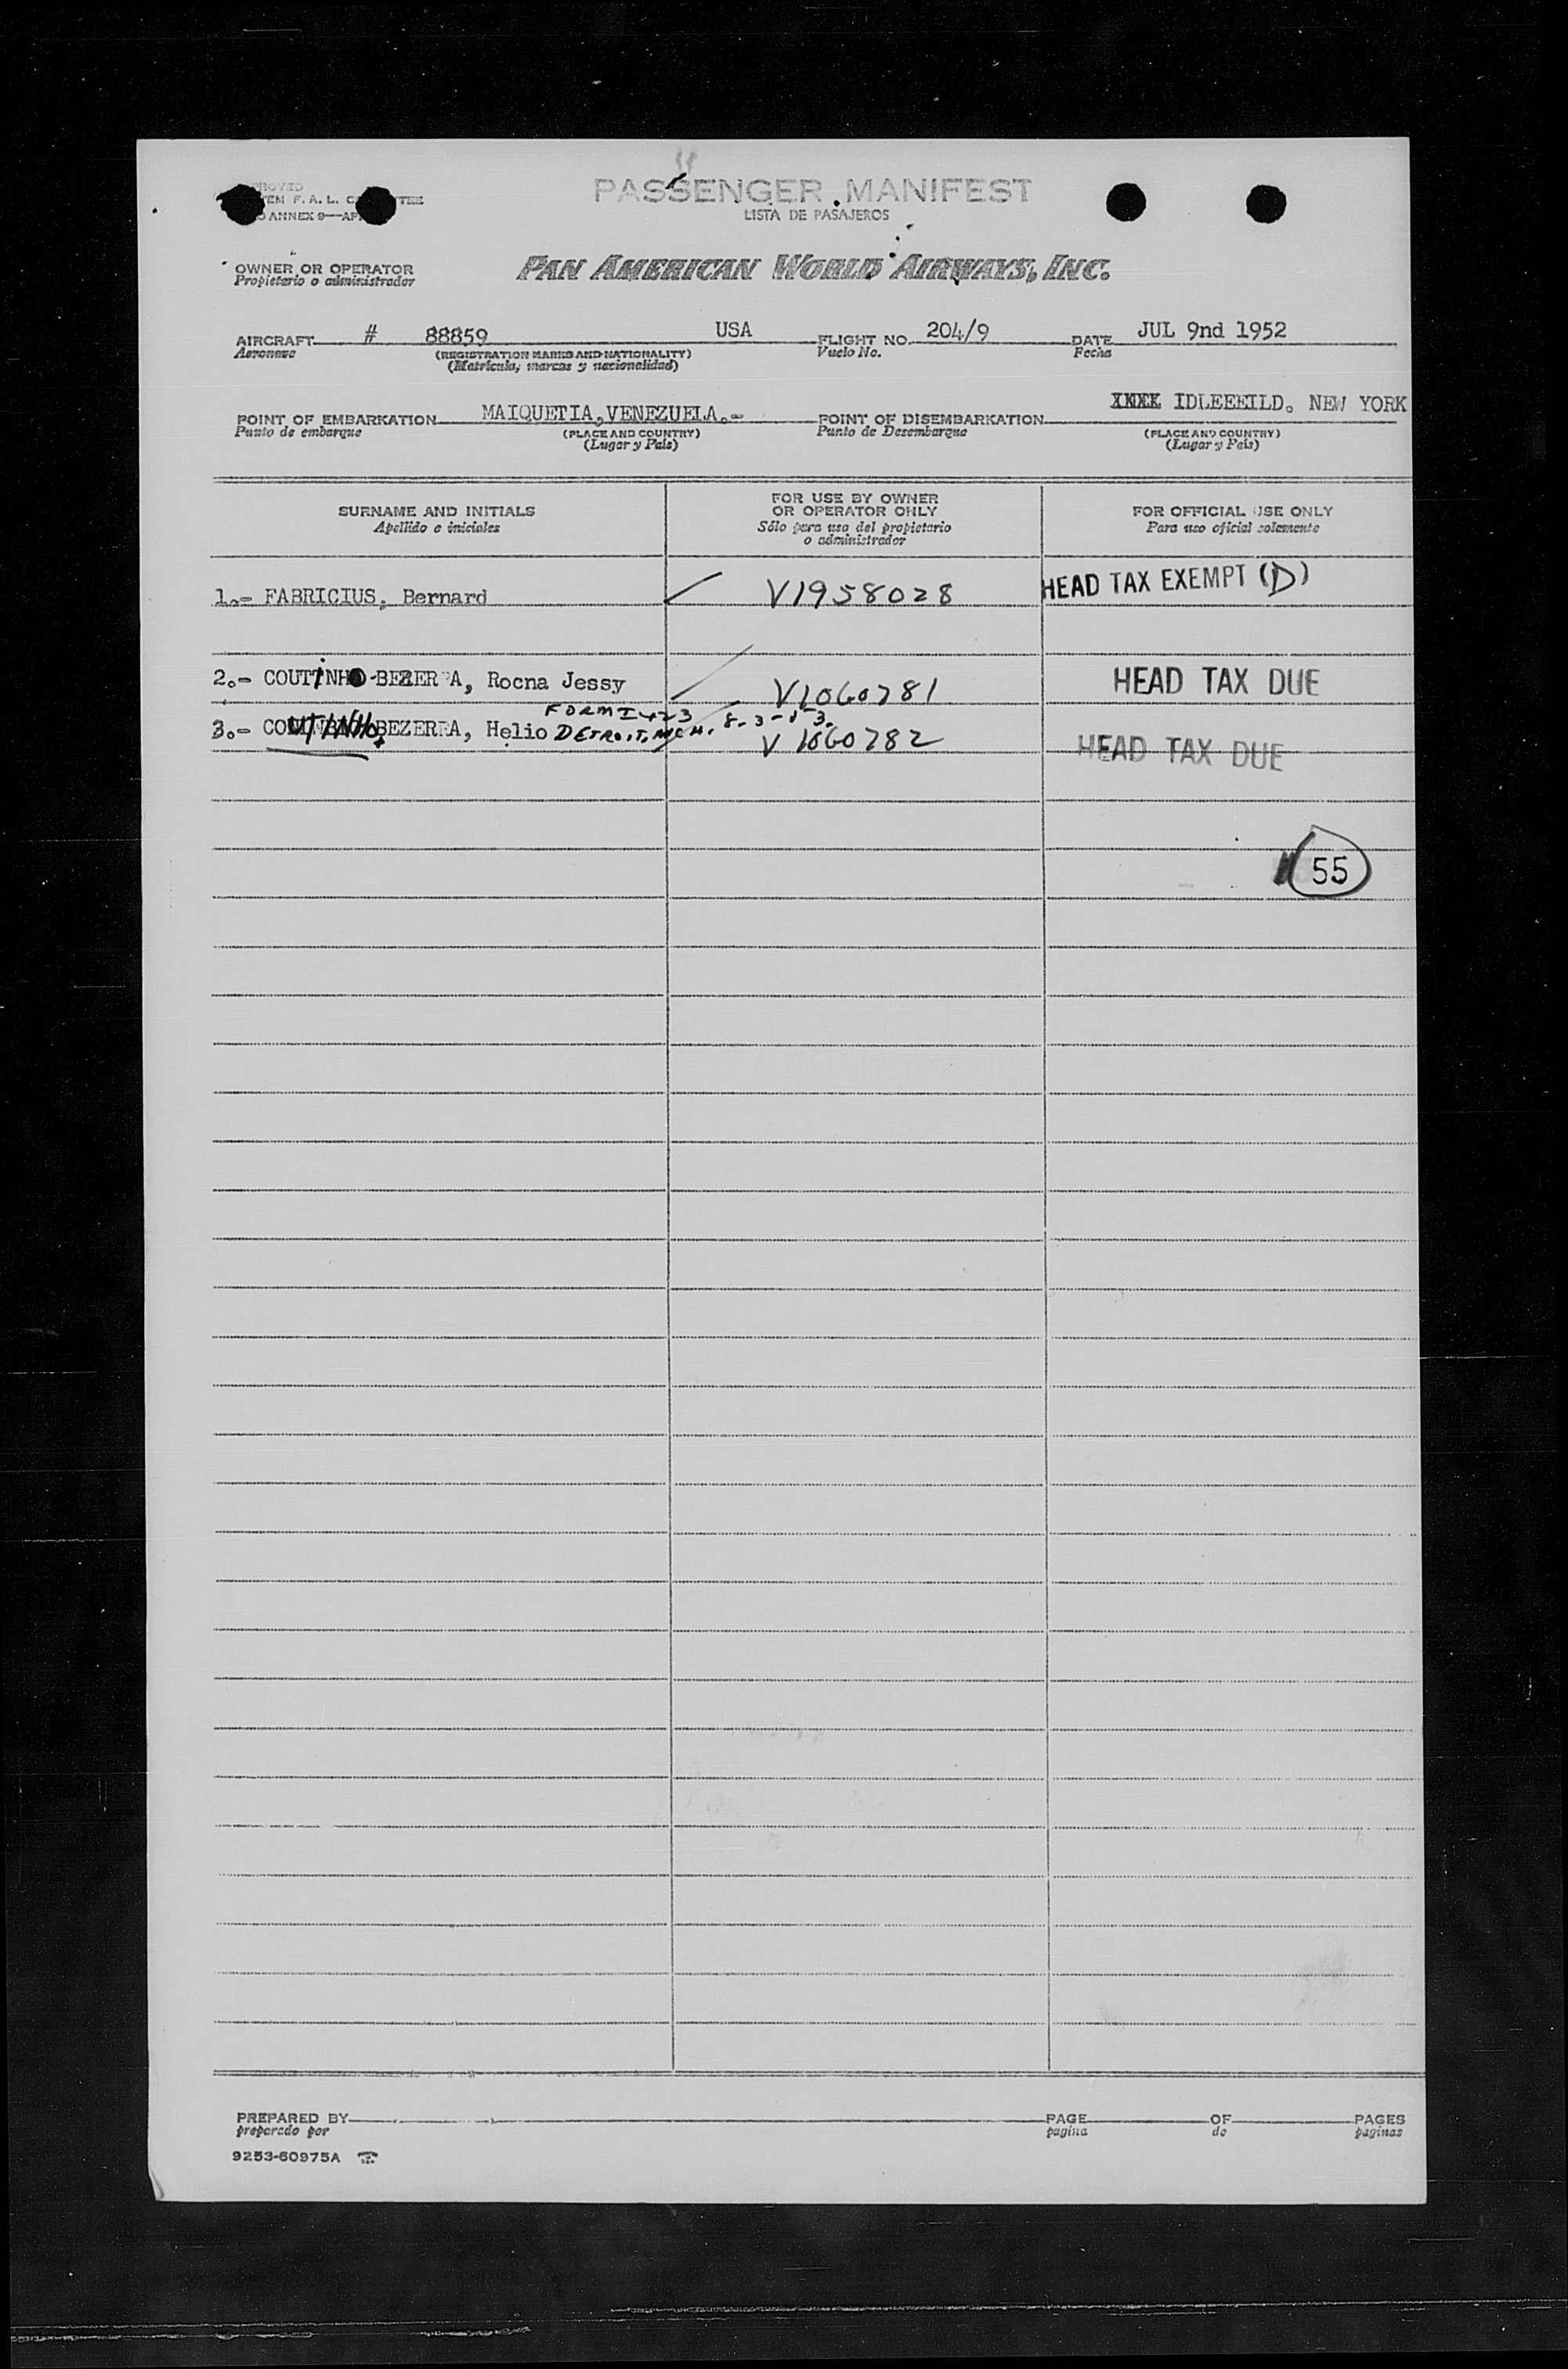 PASSENGER MANIFEST
F. A. L.
ANNEX 9
LISTA DE PASAJEROS
OWNER OR OPERATOR
Propietario o administrador
PAN AMERICAN WORLD AIRWAYS, INC.
AIRCRAFT # 88859 USA FLIGHT NO. 204/9 DATE JUL 9nd 1952
Aeronave (REGISTRATION MARKS AND NATIONALITY) Vuelo No. Fecha
(Matrícula, marcas y nacionalidad)
POINT OF EMBARKATION MAIQUETIA, VENEZUELA.- POINT OF DISEMBARKATION IDLEEEILD. NEW YORK
Punto de embarque (PLACE AND COUNTRY) Punto de Desembarque (PLACE AND COUNTRY)
(Lugar y País) (Lugar y País)
SURNAME AND INITIALS
Apellido e iniciales
FOR USE BY OWNER
OR OPERATOR ONLY
Sólo para uso del propietario
o administrador
FOR OFFICIAL USE ONLY
Para uso oficial solamente
1.- FABRICIUS, Bernard V1958028 HEAD TAX EXEMPT (D)
2.- COUTINHO-BEZERRA, Rocna Jessy V1060781 HEAD TAX DUE
FORM I 423 8-3-53.
3.- COUTINHO, BEZERRA, Helio DETROIT, MICH. V 1060782 HEAD TAX DUE
55
PREPARED BY PAGE OF PAGES
preparado por pagina de paginas
9253-60975A